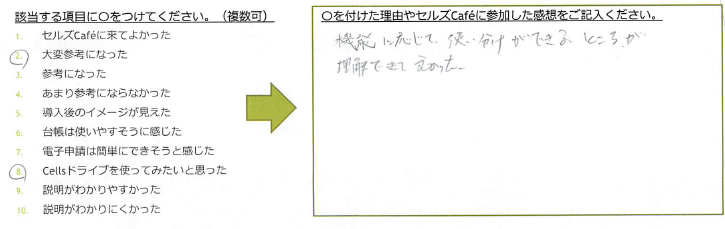 該当する項目に〇をつけてください。（複数可）
1. セルズCaféに来てよかった
2. 大変参考になった
3. 参考になった
4. あまり参考にならなかった
5. 導入後のイメージが見えた
6. 台帳は使いやすそうに感じた
7. 電子申請は簡単にできそうと感じた
8. Cellsドライブを使ってみたいと思った
9. 説明がわかりやすかった
10. 説明がわかりにくかった
〇を付けた理由やセルズCaféに参加した感想をご記入ください。
機能に応じて使い分けができるところが
理解できて良かった。